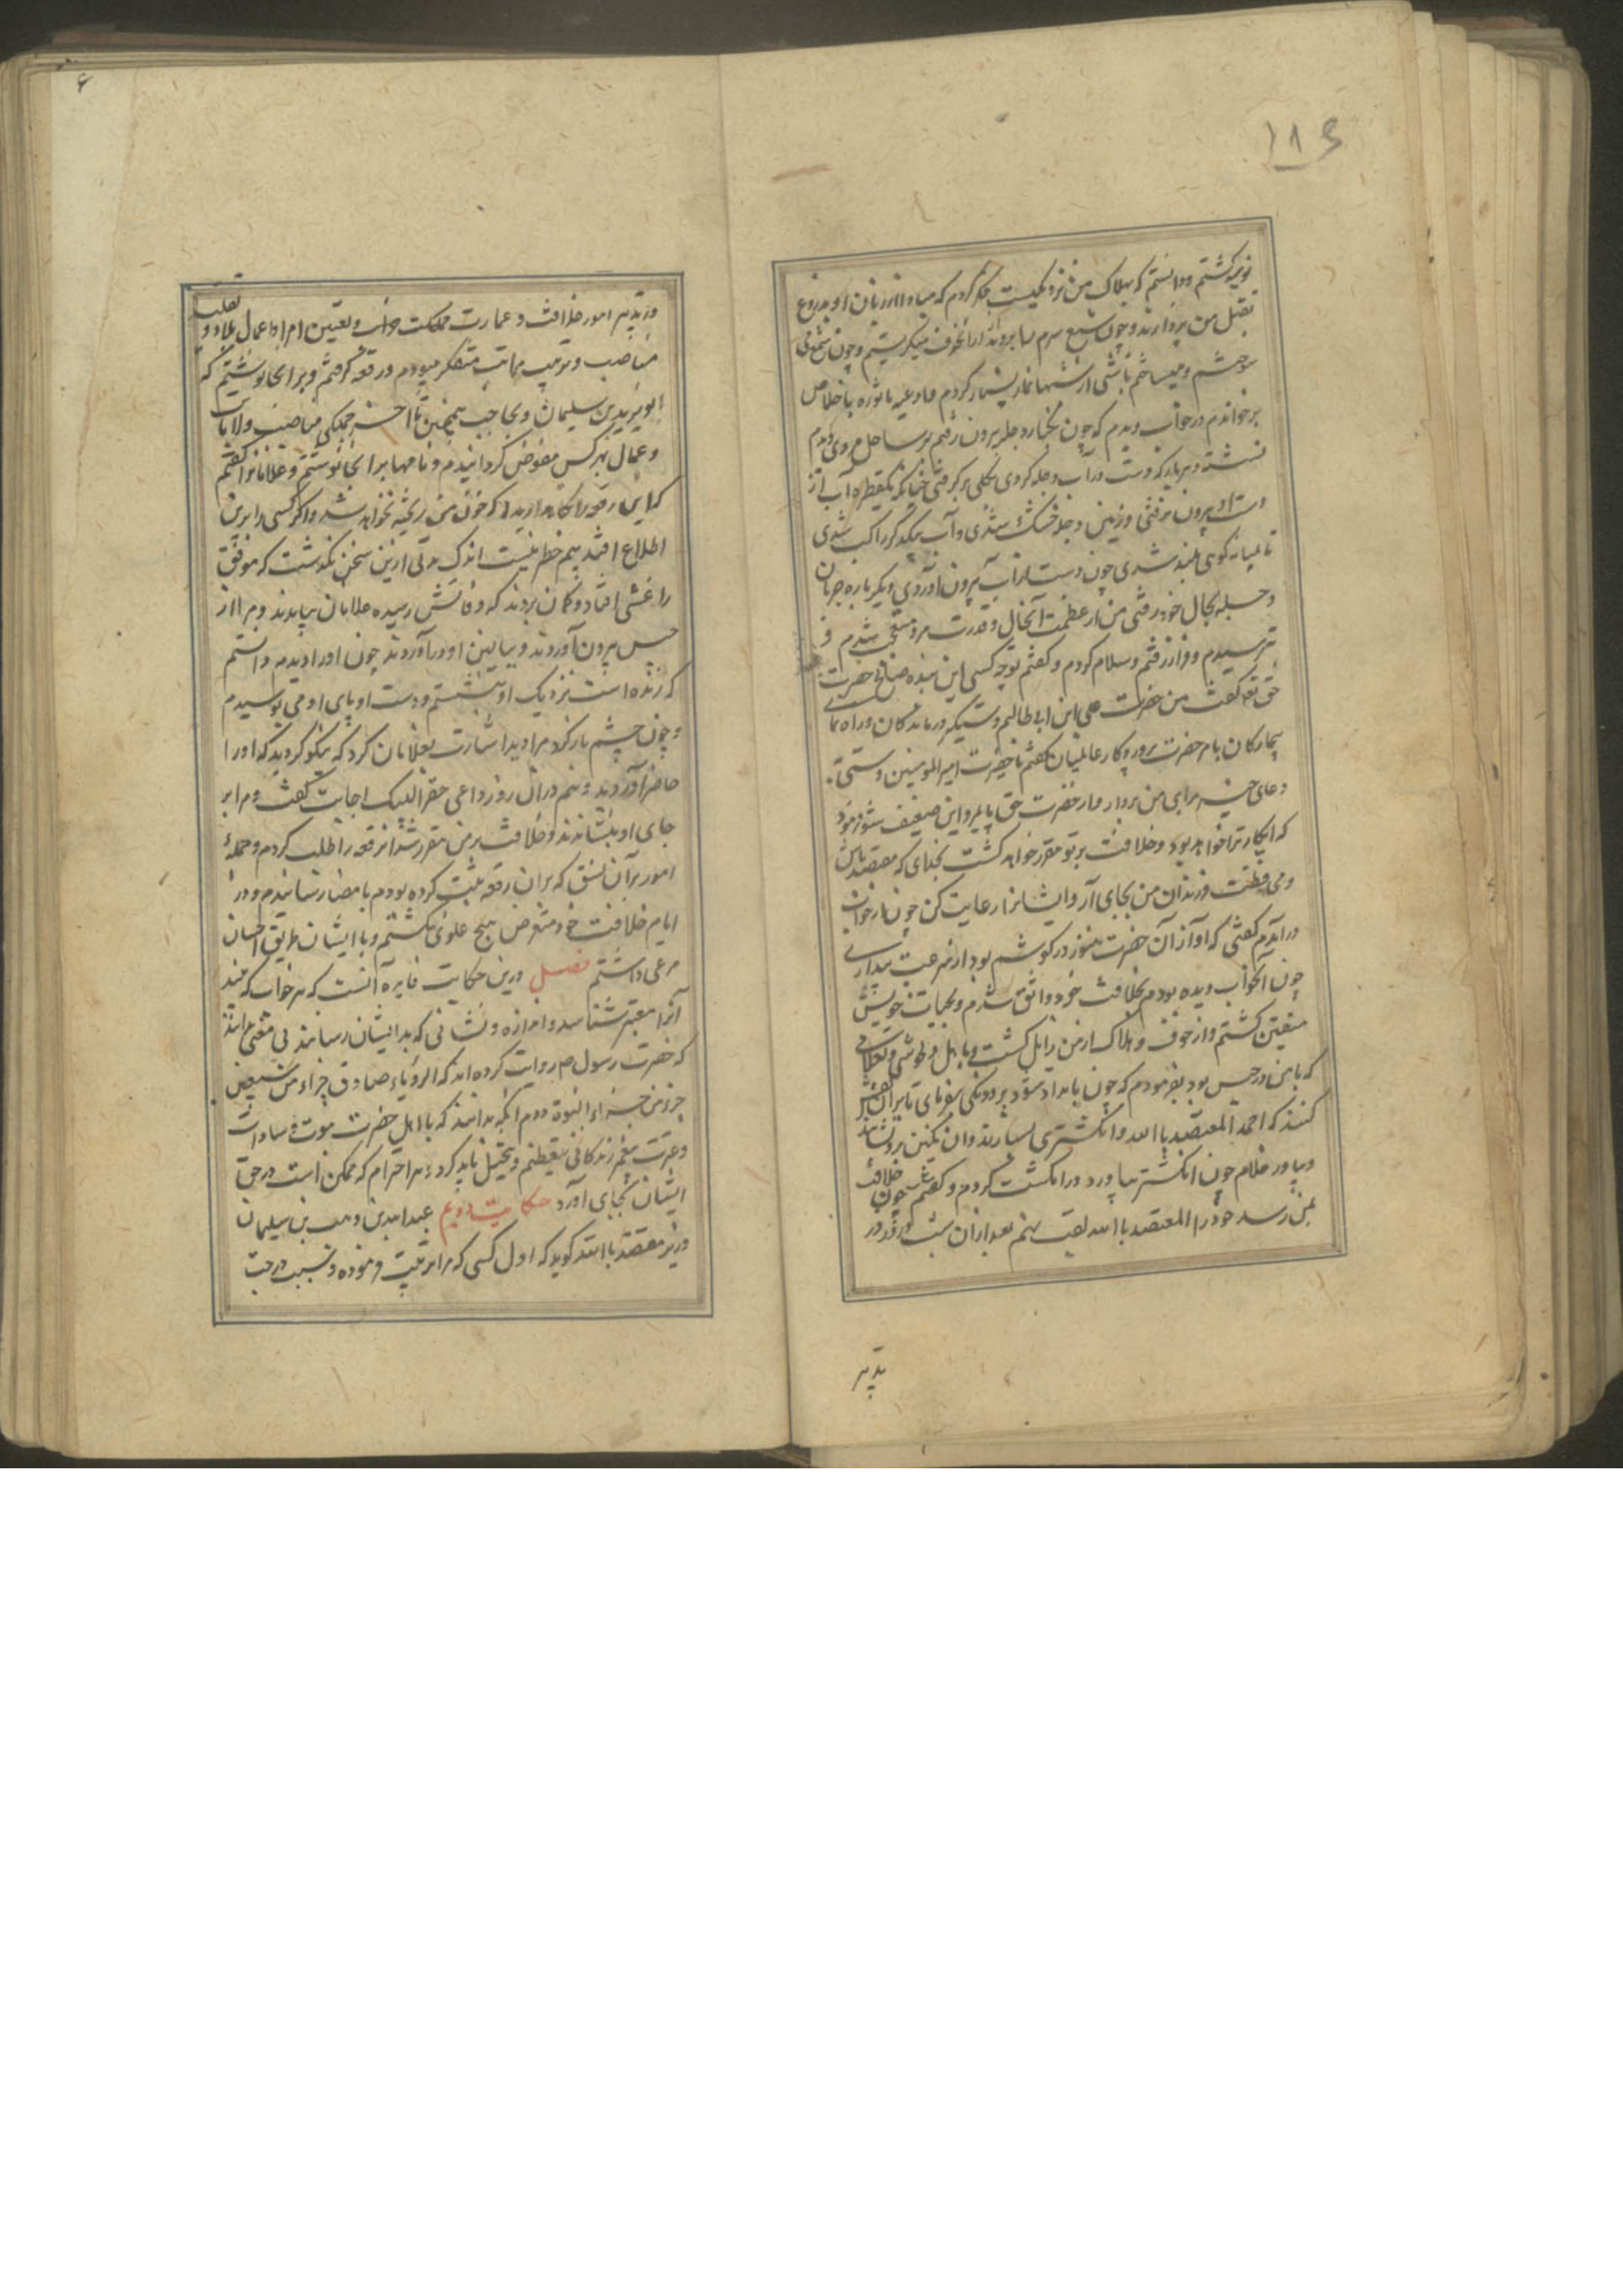 ۱۸۶
نومید گشتم و دانستم که هلاک من نزدیکست فکر کردم که مبادا از زبان او بدروغ
بقتل من پردازند و چون شمع سرم را ببرند از آن خوف میگریستم و چون شمع می
سوختم و میساختم تا شبی از شبها نماز بسیار کردم و ادعیه ماثوره باخلاص
برخواندم در خواب دیدم که چون بکنار دجله بیرون رفتم بر ساحل مردی دیدم
نشسته هر بار که دست در آب دجله کردی بکلی برگرفتی چنانکه یکقطره آب از
دست او بیرون نرفتی و زمین دجله خشک شدی و آب بیکدیگر راکب شدی
تا بمیانه کوهی بلند شدی چون دست از آب بیرون آوردی دیگر باره جریان
دجله بحال خود رفتی من از عظمت آنحال و قدرت مرد متعجب شدم و
بترسیدم و فراز رفتم و سلام کردم و گفتم تو چه کسی این بنده صالح حضرت
حق تع گفت من حضرت علی ابن ابی طالبم دستگیر درماندگان و راه نمای
بیچارگان بامر حضرت پروردگار عالمیان گفتم یا حضرت امیر المومنین دستی
دعای خیر برای من بردار و از حضرت حق پایمرد این ضعیف شو فرمود
که اینکار ترا خواهد بود و خلافت بر تو مقرر خواهد گشت بخدای که معتضد باش
و محافظت فرزندان من بجای آر و ایشانرا رعایت کن چون از خواب
درآمدم گفتی که آواز آن حضرت هنوز در گوشم بود از سرعت بیداری
چون آنخواب دیده بودم بخلافت خود واثق شدم و بحیات خویش
متیقن گشتم و از خوف و هلاک از من زایل گشت و با دل خوشی و غلامی
که با من در حبس بود بفرمودم که چون بامداد شود برو و نگینی بفرمای تا بران نقش
کنند که احمد المعتضد باالله و انگشتری بسازند و ان نگین برو نشانند
و بیاور غلام چون انگشتر بیاورد در انگشت کردم و گفتم چون خلافت
بمن رسد خود را المعتضد باالله لقب نهم بعد از آن شب و روز در
تدبیر
۶
و تدبیر امور خلافت و عمارت مملکت خراب و تعیین امرا و اعمال بلاد و تقلید
مناصب و ترتیب مراتب متفکر میبودم و رقعه گرفتم و بر آنجا نوشتم که
وزیر عبیدالله بن سلیمان و بحاجب همچنین تا آخر جملگی مناصب و ولایات
و عمال بهر کس مفوض گردانیدم و نامها بر آنجا نوشتم و غلامانرا گفتم
که این رقعه را نگاه دارید که خون من ریخته نخواهد شد و اگر کسی را برین
اطلاع افتد بیم خطر نیست اندک مدتی ازین سخن نگذشت که موفق
را غشی افتاد و گمان بردند که وفاتش رسیده غلامان بیامدند و مرا از
حبس بیرون آوردند و ببالین او درآوردند چون اورا دیدم دانستم
که زنده است نزدیک او بنشستم و دست او پای او می بوسیدم
و چون چشم باز کرد مرا دید اشارت بغلامان کرد که نیکو کردید که اورا
حاضر آوردید و هم در آن روز داعی حق را لبیک اجابت گفت و مرا بر
جای او بنشاندند و خلافت بر من مقرر شد آنرقعه را طلب کردم و جمله
امور بر آن نسق که بران رقعه ثبت کرده بودم بامضا رسانیدم و در
ایام خلافت خود متعرض هیچ علوی نگشتم و با ایشان طریق احسان
مرعی داشتم فصل درین حکایت فایده آنست که هر خواب که بیند
آنرا معتبر شناسد و اندازه و نشانی که بدایشان رسانند بی معنی ندانند
که حضرت رسول ص روایت کرده اند که الرویاء صادق جزاء من سبعین
جزء من جزاء النبوة دوم آنکه بدانند که با اهل حضرت نبوت و سادات
و عترت پیغمبر زندگانی بتعظیم و تبجیل باید کرد و هر احترام که ممکن است در حق
ایشان بجای آورد حکایت دویم عبدالله بن وهب بن سلیمان
وزیر معتضد باالله گوید که اول کسی که مرا تربیت فرموده و بسبب درجت